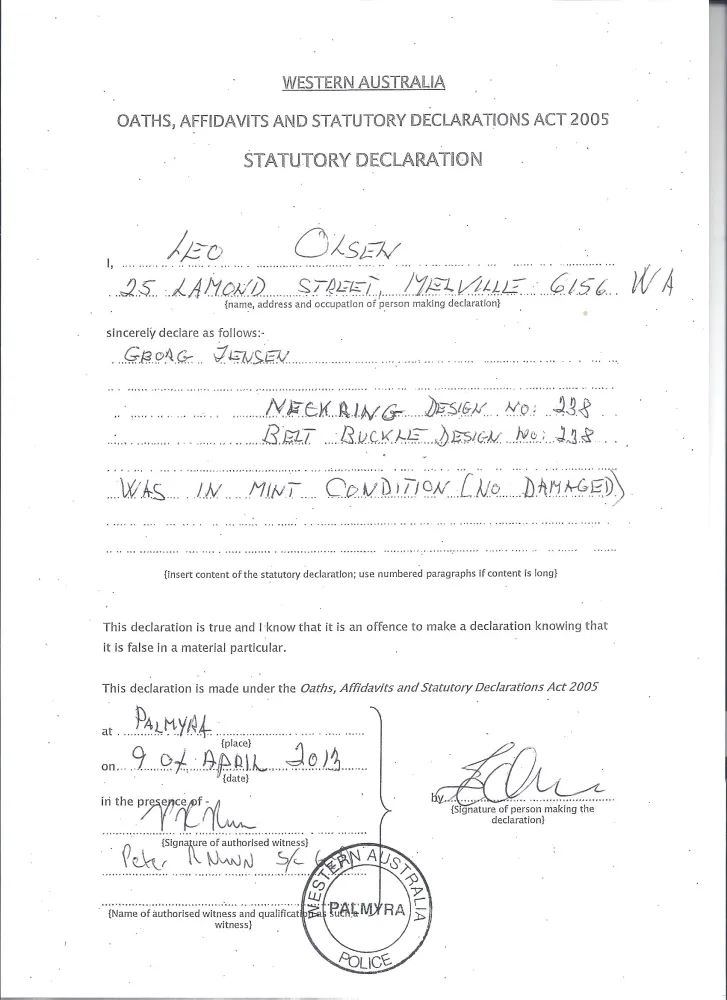 WESTERN AUSTRALIA
OATHS, AFFIDAVITS AND STATUTORY DECLARATIONS ACT 2005
STATUTORY DECLARATION
I, LEO OLSEN
25 LAMOND STREET, MELVILLE 6156 WA
{name, address and occupation of person making declaration}
sincerely declare as follows:-
GEORG JENSEN
NECKRING DESIGN NO: 238
BELT BUCKLE DESIGN NO: 238
WAS IN MINT CONDITION (NO DAMAGED)
{Insert content of the statutory declaration; use numbered paragraphs if content is long}
This declaration is true and I know that it is an offence to make a declaration knowing that
it is false in a material particular.
This declaration is made under the Oaths, Affidavits and Statutory Declarations Act 2005
at PALMYRA
{place}
on 9 of APRIL 2013
{date}
in the presence of -
by
{Signature of person making the
declaration}
{Signature of authorised witness}
Peter R NUNN S/C
{Name of authorised witness and qualification as such a
witness}
WESTERN AUSTRALIA
PALMYRA
POLICE